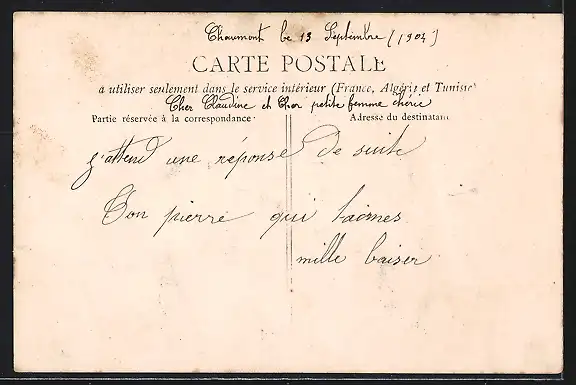 Chaumont le 13 Septembre (1904)
CARTE POSTALE
a utiliser seulement dans le service intérieur (France, Algérie et Tunisie)
Cher Claudine et Cher petite femme chérie
Partie réservée à la correspondance
Adresse du destinataire
j'attend une réponse de suite
Ton pierre qui t'aimes
mille baiser